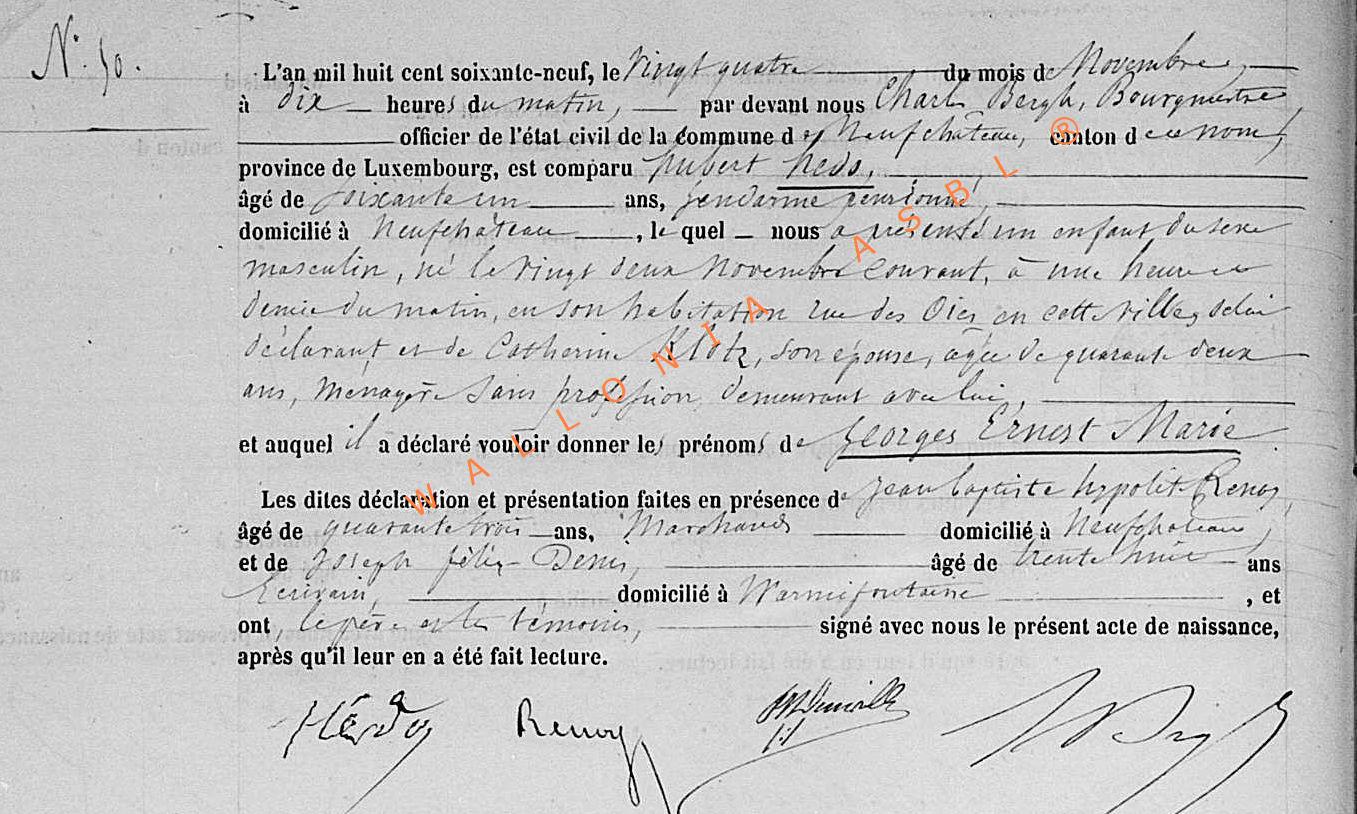 N°. 50.
L'an mil huit cent soixante-neuf, le Vingt quatre du mois de Novembre,
à dix heures du matin, par devant nous Charles Bergh, Bourgmestre
officier de l'état civil de la commune de Neufchâteau, canton de ce nom,
province de Luxembourg, est comparu hubert
âgé de soixante un ans, gendarme pensionné,
domicilié à Neufchâteau, le quel nous a présenté un enfant du sexe
masculin, né le vingt deux Novembre courant, à une heure et
demie du matin, en son habitation rue des Oies en cette ville, de lui
déclarant et de Catherine Klotz, son épouse, agée de quarante deux
ans, Ménagère sans profession, demeurant avec lui,
et auquel il a déclaré vouloir donner les prénoms de Georges Ernest Marie
Les dites déclaration et présentation faites en présence de Jean baptiste hypolite Renoy,
âgé de quarante trois ans, Marchand domicilié à Neufchâteau,
et de Joseph félix Denis, âgé de trente huit ans
Ecrivain, domicilié à Warmifontaine, et
ont, le père et les témoins, signé avec nous le présent acte de naissance,
après qu'il leur en a été fait lecture.
Renoy
WALLONIA ASBL ®